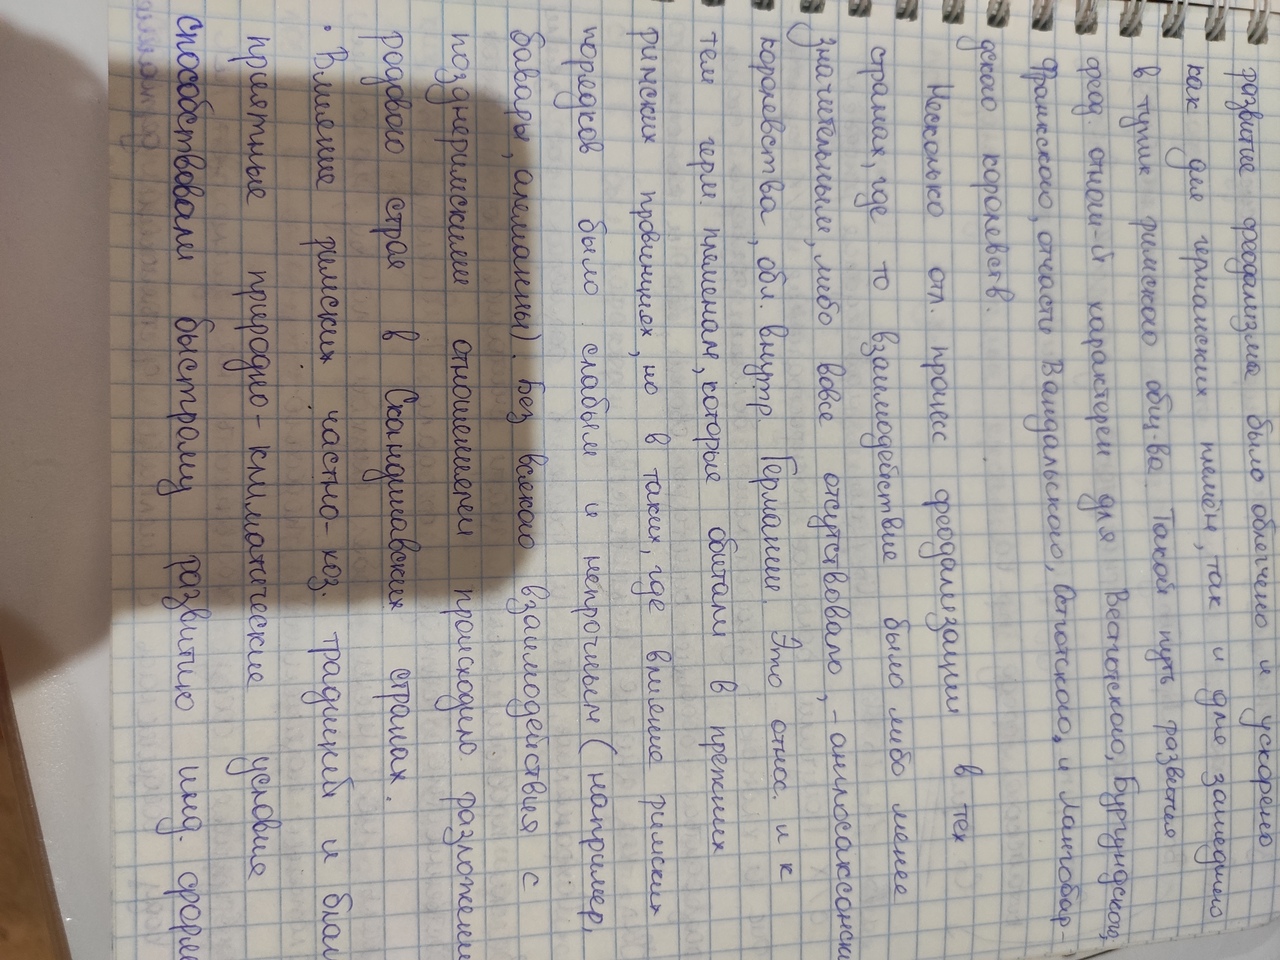 развитие феодализма было облегчено и ускорено
как для германских племён, так и для зашедшего
в тупик римского общ-ва. Такой путь развития
феод. отнош-й характерен для Вестготского, Бургундского,
Франкского, отчасти Вандальского, Остготского, и Лангобар-
дского королевств.
Несколько отл. процесс феодализации в тех
странах, где то взаимодействие было либо менее
значительным, либо вовсе отсутствовало, - англосаксонски
королевства, обл. внутр. Германии. Это относ. и к
тем герм. племенам, которые обитали в прежних
римских провинциях, но в таких, где влияние римских
порядков было слабым и непрочным (например,
бавары, алеманны). Без всякого взаимодействия с
позднеримскими отношениями происходило разложени
родового строя в Скандинавских странах.
• Влияние римских частно-хоз. традиций и благ
приятные природно-климатические условия
способствовали быстрому развитию инд. форм